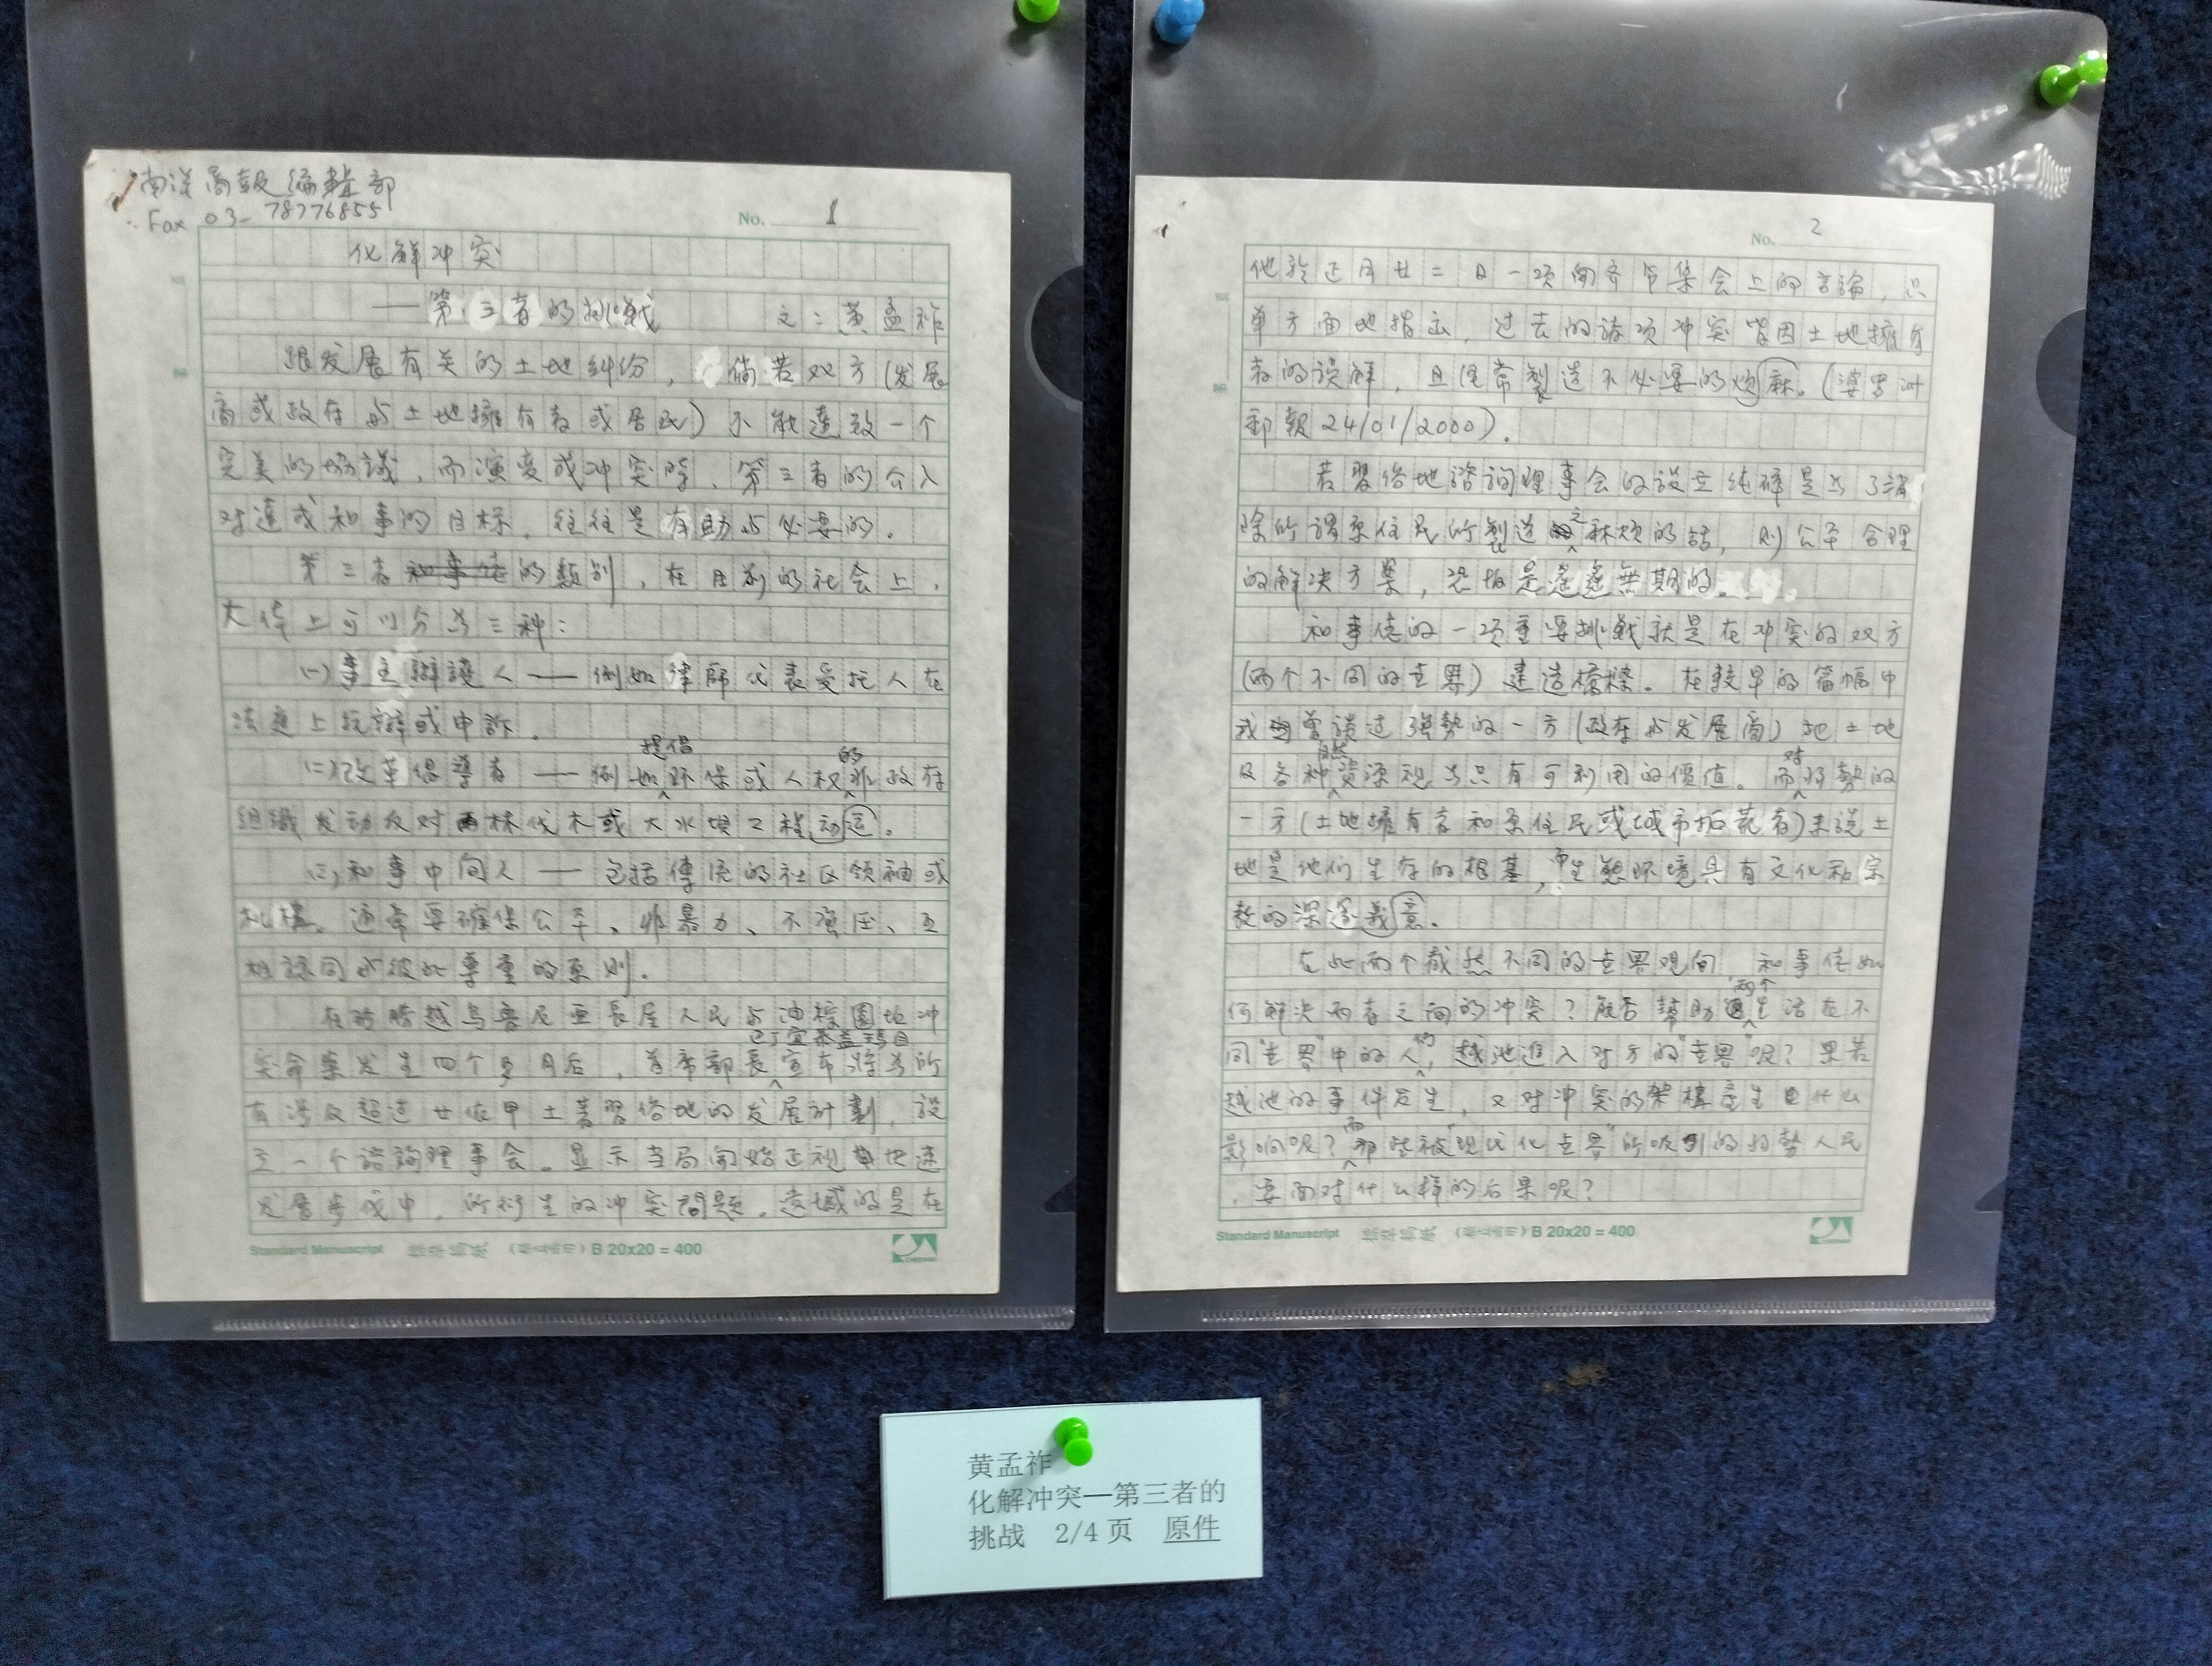 南洋商報編輯部
Fax 03-78776855
No. 1
化解冲突
——第三者的挑戦 文:黄孟祚
跟发展有关的土地纠纷,倘若双方(发展
商或政府与土地擁有者或居民)不能達致一个
完美的協議,而演变成冲突時,第三者的介入
对達成和事的目标,往往是有助与必要的。
第三者的類别,在目前的社会上,
大体上可以分为三种:
(一)事主辯護人——例如律師代表受託人在
法庭上抗辯或申訴。
(二)改革倡導者——例如提倡环保或人权的非政府
組織发动反对森林伐木或大水坝工程动运。
(三)和事中间人——包括傳统的社区领袖或
机構。通常要確保公平、非暴力、不强压、互
相認同与彼此尊重的原则。
在砂勝越乌魯尼亜長屋人民与油棕園地冲
突命案发生四个多月后,首席部長宣布将为所
有涉及超过廿依甲土著習俗地的发展計劃,設
立一个諮詢理事会。显示当局闻始正视土地速
发展步伐中,所衍生的冲突問题。遗憾的是在
Standard Manuscript 標準稿紙 B 20x20 = 400
No. 2
他於正月廿二日一项闻齐节集会上的言論,只
单方面地指出,过去的諸项冲突皆因土地擁有
者的误解,且经常製造不必要的烦麻。(婆罗洲
郵報 24/01/2000)。
若習俗地諮詢理事会的設立纯粹是为了消
除所謂原住民所製造之麻烦的話,则公平合理
的解决方案,恐怕是遥遥無期的。
和事佬的一项重要挑戦就是在冲突的双方
(两个不同的世界)建造橋樑。在較早的篇幅中
我曾談过强勢的一方(政府与发展商)把土地
及各种自然资源视为只有可利用的價值。而对弱勢的
一方(土地擁有者和原住民或城市拓荒者)来説土
地是他们生存的根基,而生態环境具有文化和宗
教的深邃義意。
在此两个截然不同的世界观间,和事佬如
何解决两者之间的冲突?能否幫助两个生活在不
同"世界"中的人们,越池進入对方的"世界"呢?果若
越池的事件发生,又对冲突的架構産生什么
影响呢?而那些被"现代化世界"所吸引的弱勢人民
,要面对什么样的后果呢?
Standard Manuscript 標準稿紙 B 20x20 = 400
黄孟祚
化解冲突—第三者的
挑战 2/4 页 原件